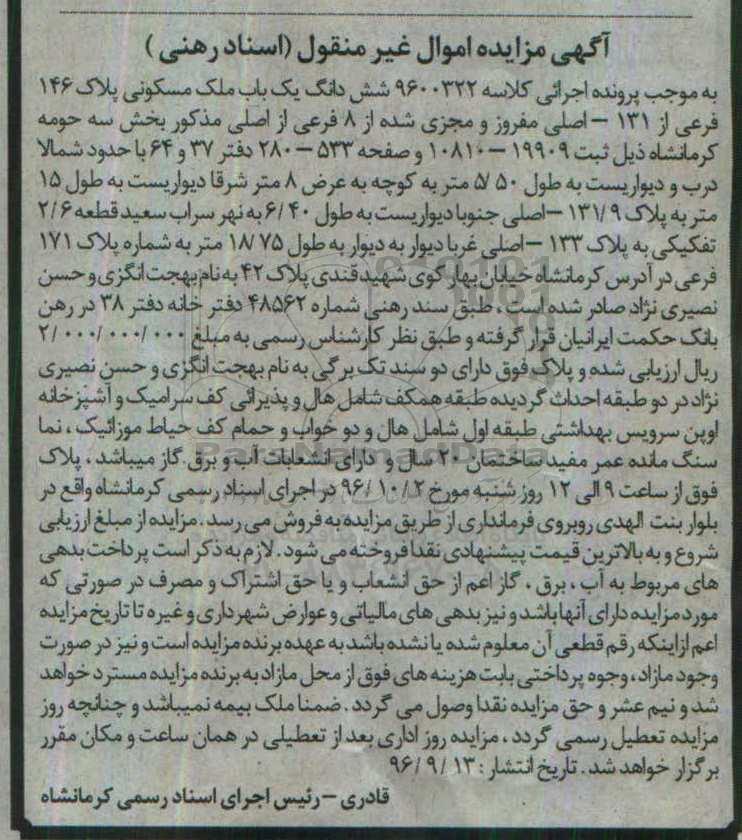 آگهی مزایده اموال غیر منقول (اسناد رهنی)
به موجب پرونده اجرائی کلاسه ۹۶۰۰۳۲۲ شش دانگ یک باب ملک مسکونی پلاک ۱۴۶
فرعی از ۱۳۱ – اصلی مفروز و مجزی شده از ۸ فرعی از اصلی مذکور بخش سه حومه
کرمانشاه ذیل ثبت ۱۹۹۰۹ – ۱۰۸۱۰ و صفحه ۵۳۳ – ۲۸۰ دفتر ۳۷ و ۶۴ با حدود شمالا
درب و دیواریست به طول ۵/۵۰ متر به کوچه به عرض ۸ متر شرقا دیواریست به طول ۱۵
متر به پلاک ۱۳۱/۹ – اصلی جنوبا دیواریست به طول ۶/۴۰ به نهر سراب سعید قطعه ۲/۶
تفکیکی به پلاک ۱۳۳ – اصلی غربا دیوار به دیوار به طول ۱۸/۷۵ متر به شماره پلاک ۱۷۱
فرعی در آدرس کرمانشاه خیابان بهار کوی شهید قندی پلاک ۴۲ به نام بهجت انگزی و حسن
نصیری نژاد صادر شده است، طبق سند رهنی شماره ۴۸۵۶۲ دفتر خانه دفتر ۳۸ در رهن
بانک حکمت ایرانیان قرار گرفته و طبق نظر کارشناس رسمی به مبلغ ۲/۰۰۰/۰۰۰/۰۰۰
ریال ارزیابی شده و پلاک فوق دارای دو سند تک برگی به نام بهجت انگزی و حسن نصیری
نژاد در دو طبقه احداث گردیده طبقه همکف شامل هال و پذیرائی کف سرامیک و آشپزخانه
اوپن سرویس بهداشتی طبقه اول شامل هال و دو خواب و حمام کف حیاط موزائیک، نما
سنگ مانده عمر مفید ساختمان ۲۰ سال و دارای انشعابات آب و برق گاز میباشد، پلاک
فوق از ساعت ۹ الی ۱۲ روز شنبه مورخ ۹۶/۱۰/۲ در اجرای اسناد رسمی کرمانشاه واقع در
بلوار بنت الهدی روبروی فرمانداری از طریق مزایده به فروش می رسد. مزایده از مبلغ ارزیابی
شروع و به بالاترین قیمت پیشنهادی نقدا فروخته می شود. لازم به ذکر است پرداخت بدهی
های مربوط به آب، برق، گاز اعم از حق انشعاب و یا حق اشتراک و مصرف در صورتی که
مورد مزایده دارای آنها باشد و نیز بدهی های مالیاتی و عوارض شهرداری و غیره تا تاریخ مزایده
اعم از اینکه رقم قطعی آن معلوم شده یا نشده باشد به عهده برنده مزایده است و نیز در صورت
وجود مازاد، وجوه پرداختی بابت هزینه های فوق از محل مازاد به برنده مزایده مسترد خواهد
شد و نیم عشر و حق مزایده نقدا وصول می گردد. ضمنا ملک بیمه نمیباشد و چنانچه روز
مزایده تعطیل رسمی گردد، مزایده روز اداری بعد از تعطیلی در همان ساعت و مکان مقرر
برگزار خواهد شد. تاریخ انتشار: ۹۶/۹/۱۳
قادری – رئیس اجرای اسناد رسمی کرمانشاه